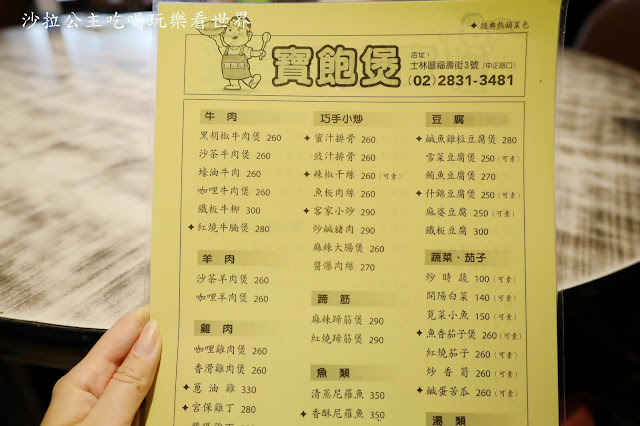 沙拉公主吃喝玩樂看世界
✦經典熱銷菜色
寶飽煲
店址：
士林區福壽街3號(中正路口)
(02)2831-3481
牛 肉
黑胡椒牛肉煲 260
沙茶牛肉煲 260
蠔油牛肉 260
咖哩牛肉煲 260
鐵板牛柳 300
✦紅燒牛腩煲 280
羊 肉
沙茶羊肉煲 260
咖哩羊肉煲 260
雞 肉
咖哩雞肉煲 260
香滑雞肉煲 260
✦蔥油雞 330
✦宮保雞丁 280
巧手小炒
✦蜜汁排骨 260
豉汁排骨 260
✦辣椒干絲 260(可素)
魚板肉絲 260
✦客家小炒 290
炒鹹豬肉 290
麻辣大腸煲 260
醬爆肉絲 270
蹄 筋
麻辣蹄筋煲 290
紅燒蹄筋煲 290
魚 類
清蒸尼羅魚 350
✦香酥尼羅魚 350
豆 腐
✦鹹魚雞粒豆腐煲 280
雪菜豆腐煲 250(可素)
鮪魚豆腐煲 270
✦什錦豆腐煲 250(可素)
麻婆豆腐 250(可素)
鐵板豆腐 300
蔬菜、茄子
炒時蔬 100(可素)
開陽白菜 140(可素)
莧菜小魚 150(可素)
✦魚香茄子煲 260(可素)
紅燒茄子 260(可素)
炒香菇 260(可素)
✦鹹蛋苦瓜 260(可素)
湯 類